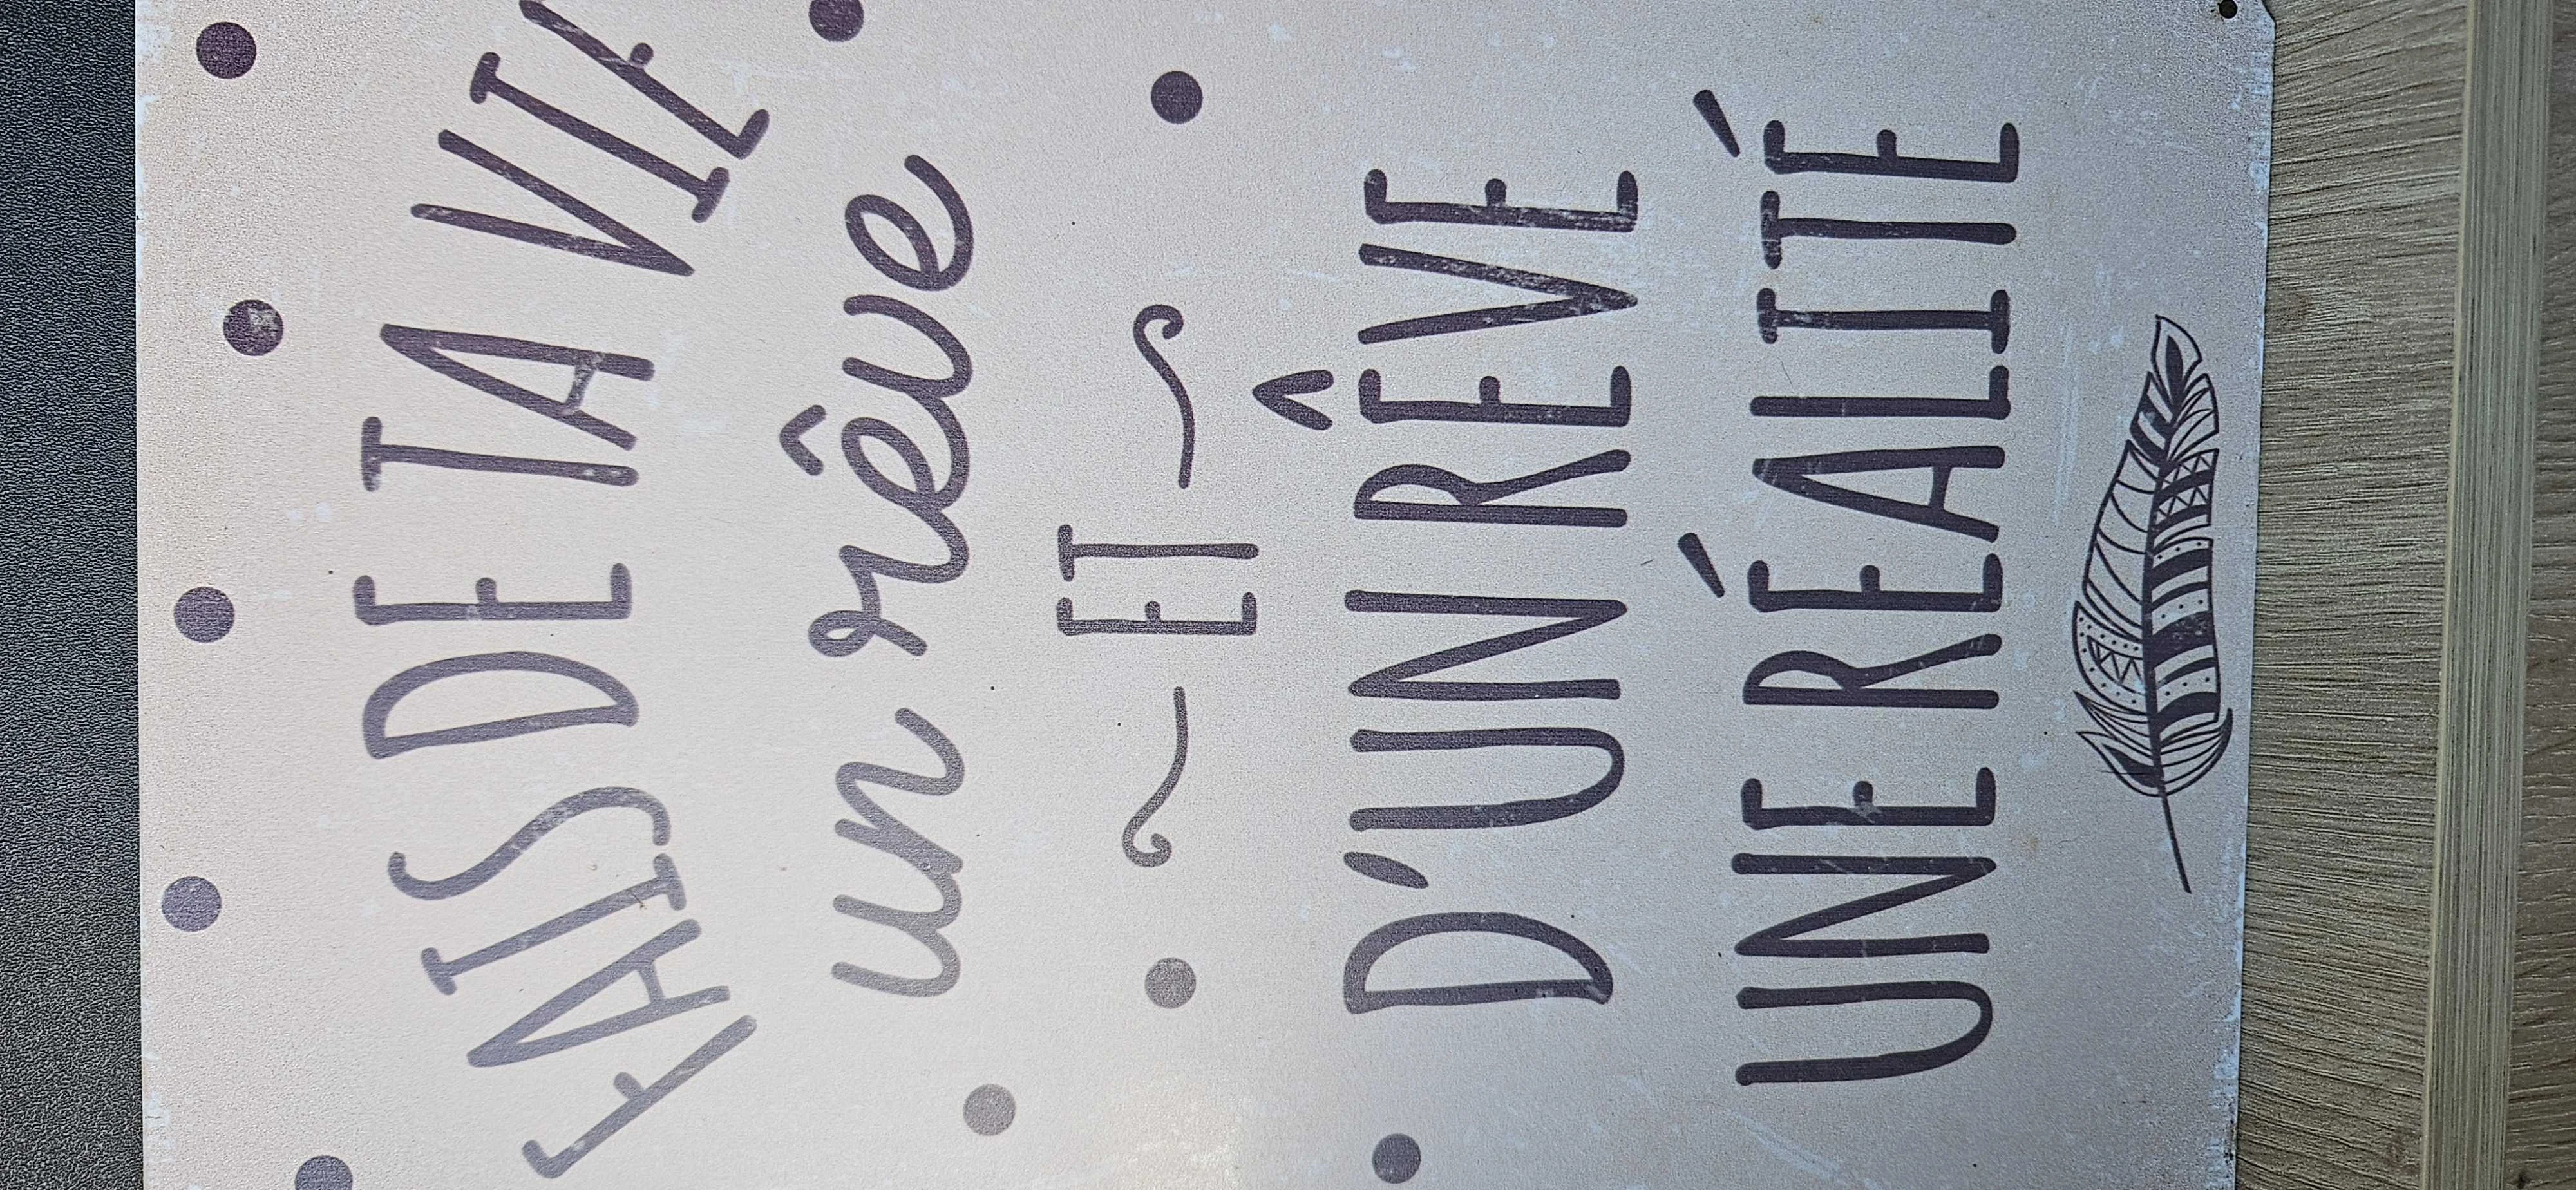 FAIS DE TA VIE
un rêve
ET
D'UN RÊVE
UNE RÉALITÉ